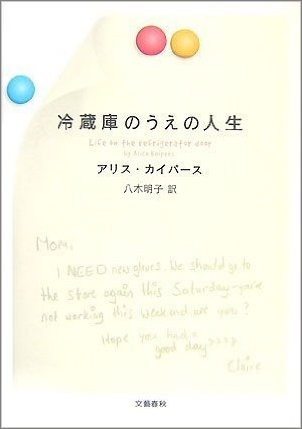 冷蔵庫のうえの人生
Life on the refrigerator door
by Alice Kuipers
アリス・カイパース
八木明子 訳
Mom,
I NEED new gloves. We should go to
the store again this Saturday-you're
not working this weekend, are you?
Hope you had a
good day>>>>
Claire
文藝春秋